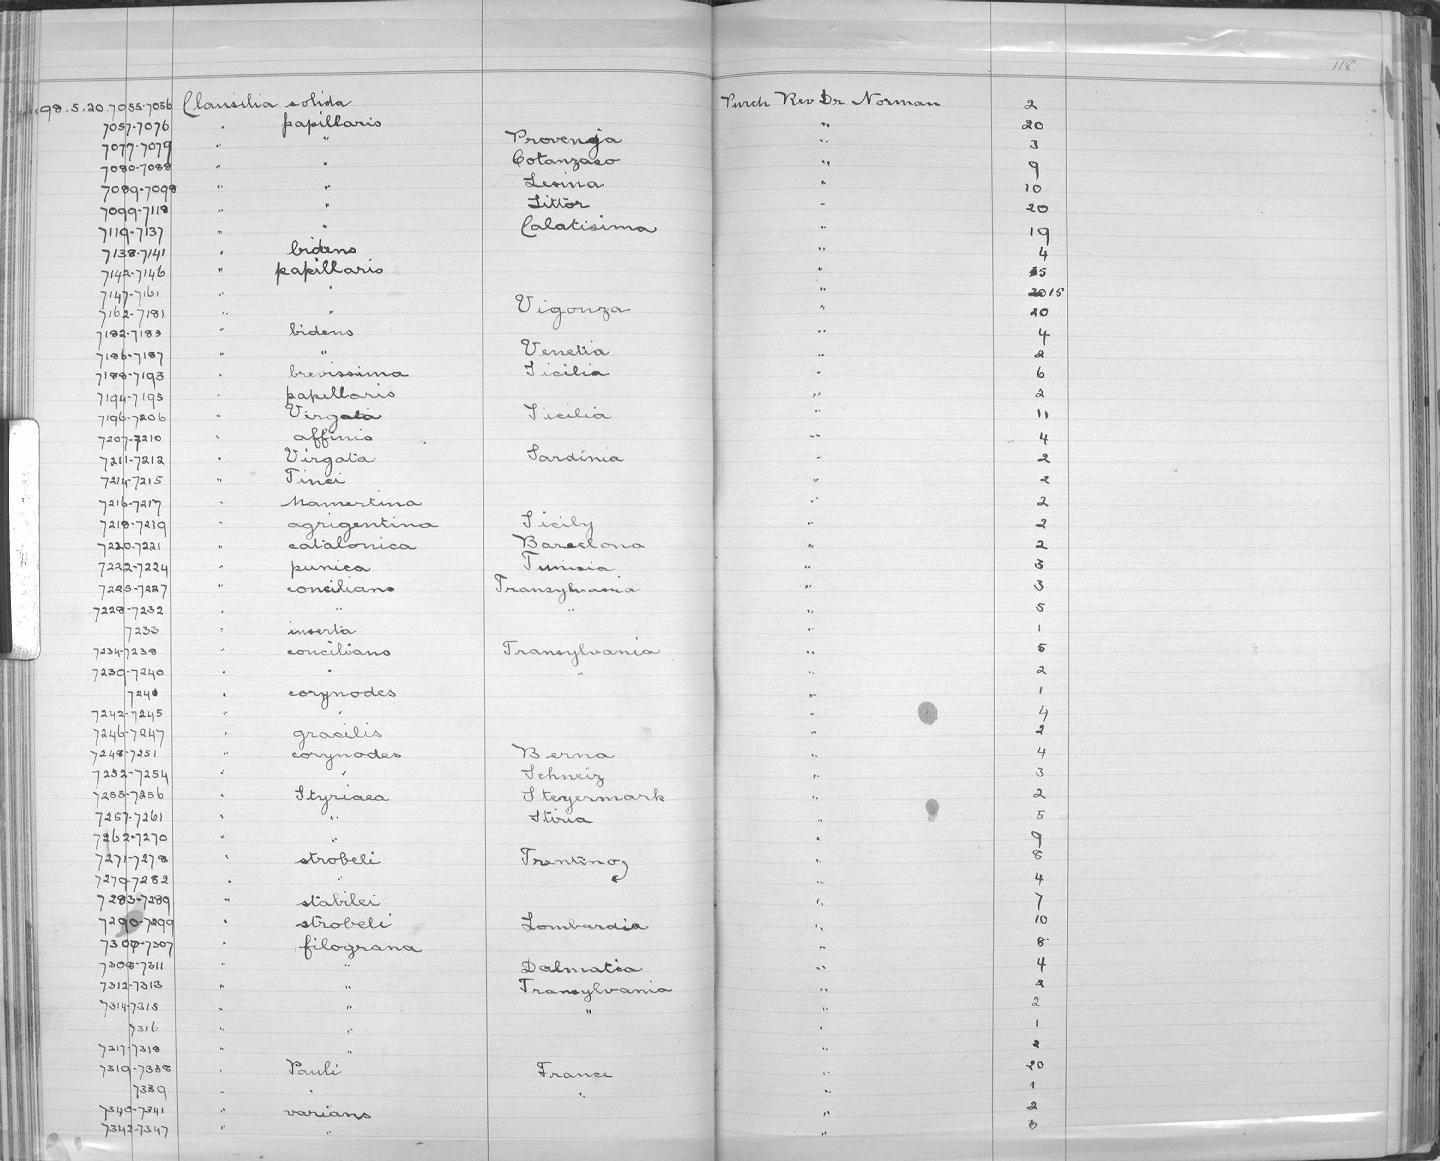 118.
98.5.20.7055-7056 Clausilia solida Purch Rev Dr Norman 2
7057-7076 " papillaris " 20
7077-7079 " " Provenja " 3
7080-7088 " " Cotanzaso " 9
7089-7098 " " Lesina " 10
7099-7118 " " Littor " 20
7119-7137 " " Calatisima " 19
7138-7141 " bidens " 4
7142-7146 " papillaris " 5
7147-7161 " " " 15
7162-7181 " " Vigonza " 20
7182-7185 " bidens " 4
7186-7187 " " Venetia " 2
7188-7193 " brevissima Sicilia " 6
7194-7195 " papillaris " 2
7196-7206 " Virgata Sicilia " 11
7207-7210 " affinis " 4
7211-7212 " Virgata Sardinia " 2
7214-7215 " Tinei " 2
7216-7217 " Mamertina " 2
7218-7219 " agrigentina Sicily " 2
7220-7221 " catalonica Barcelona " 2
7222-7224 " punica Tunisia " 3
7225-7227 " concilians Transylvania " 3
7228-7232 " " " " 5
7233 " inserta " 1
7234-7238 " concilians Transylvania " 5
7239-7240 " " " " 2
7241 " corynodes " 1
7242-7245 " " " 4
7246-7247 " gracilis " 2
7248-7251 " corynodes Berna " 4
7252-7254 " " Schneiz " 3
7255-7256 " Styriaca Steyermark " 2
7257-7261 " " Stiria " 5
7262-7270 " " " 9
7271-7278 " strobeli Trentino " 8
7279-7282 " " " 4
7283-7289 " stabilei " 7
7290-7299 " strobeli Lombardia " 10
7300-7307 " filograna " 8
7308-7311 " " Dalmatia " 4
7312-7313 " " Transylvania " 2
7314-7315 " " " " 2
7316 " " " 1
7317-7318 " " " 2
7319-7338 " Pauli France " 20
7339 " " " " 1
7340-7341 " varians " 2
7342-7347 " " " 6